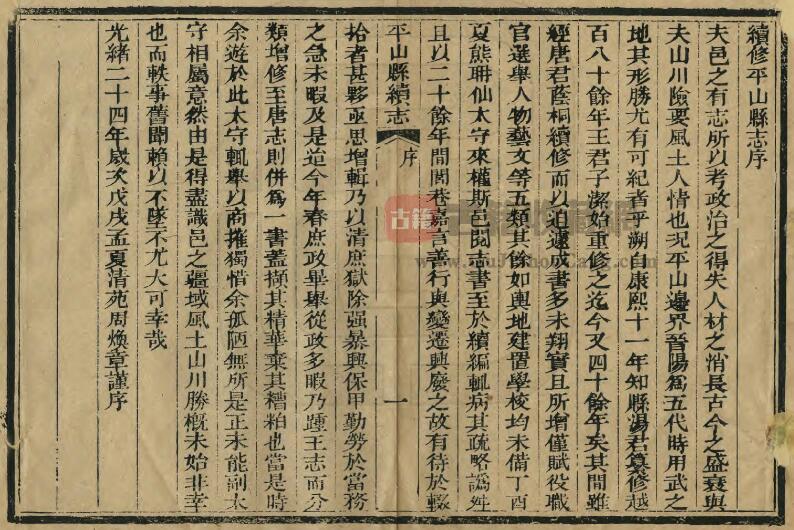 續修平山縣志序
夫邑之有志所以考政治之得失人材之消長古今之盛衰與
夫山川險要風土人情也況平山邊界晉陽為五代時用武之
地其形勝尤有可紀者乎溯自康熙十一年知縣湯君纂修越
百八十餘年王君子潔始重修之迄今又四十餘年矣其間雖
經唐君蔭桐續修而以迫遽成書多未翔實且所增僅賦役職
官選舉人物藝文等五類其餘如輿地建置學校均未備丁酉
夏熊珊仙太守來權斯邑閱志書至於續編輒病其疏略譌舛
且以二十餘年間閭巷嘉言善行與變遷興廢之故有待於輟
平山縣續志
序
一
拾者甚夥亟思增輯乃以清庶獄除强暴興保甲勤勞於當務
之急未暇及是迨今年春庶政畢舉從政多暇乃踵王志而分
類增修至唐志則併為一書蓋擷其精華棄其糟粕也當是時
余遊於此太守輒舉以商搉獨惜余孤陋無所是正未能副太
守相屬意然由是得盡識邑之疆域風土山川勝概未始非幸
也而軼事舊聞賴以不墜不尤大可幸哉
光緒二十四年歲次戊戌孟夏清苑周煥章謹序
古籍